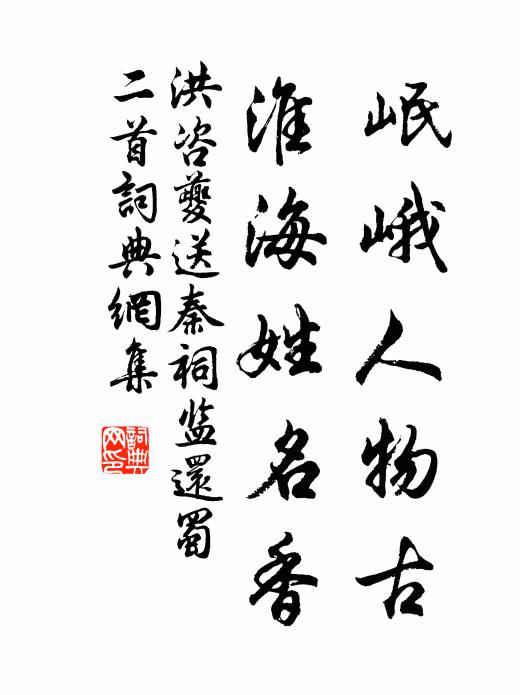 岷峨人物古
淮海姓名香
洪咨夔送秦祠监還蜀
二首詞典網集
詞典
网印